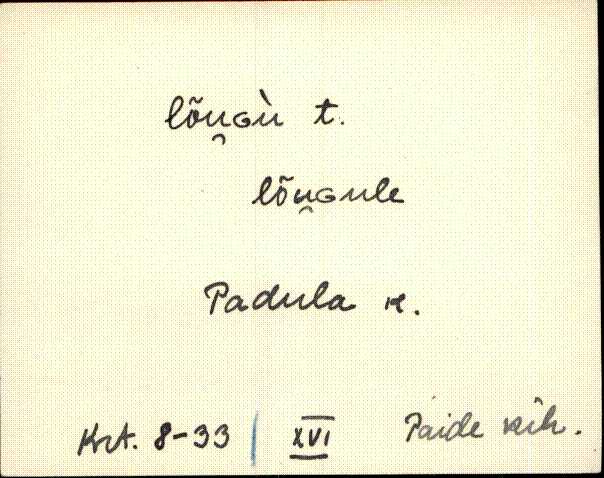 lõu̯Gù t.
lõu̯Gule
Padula k.
Krt. 8-33 | XVI Paide kih.